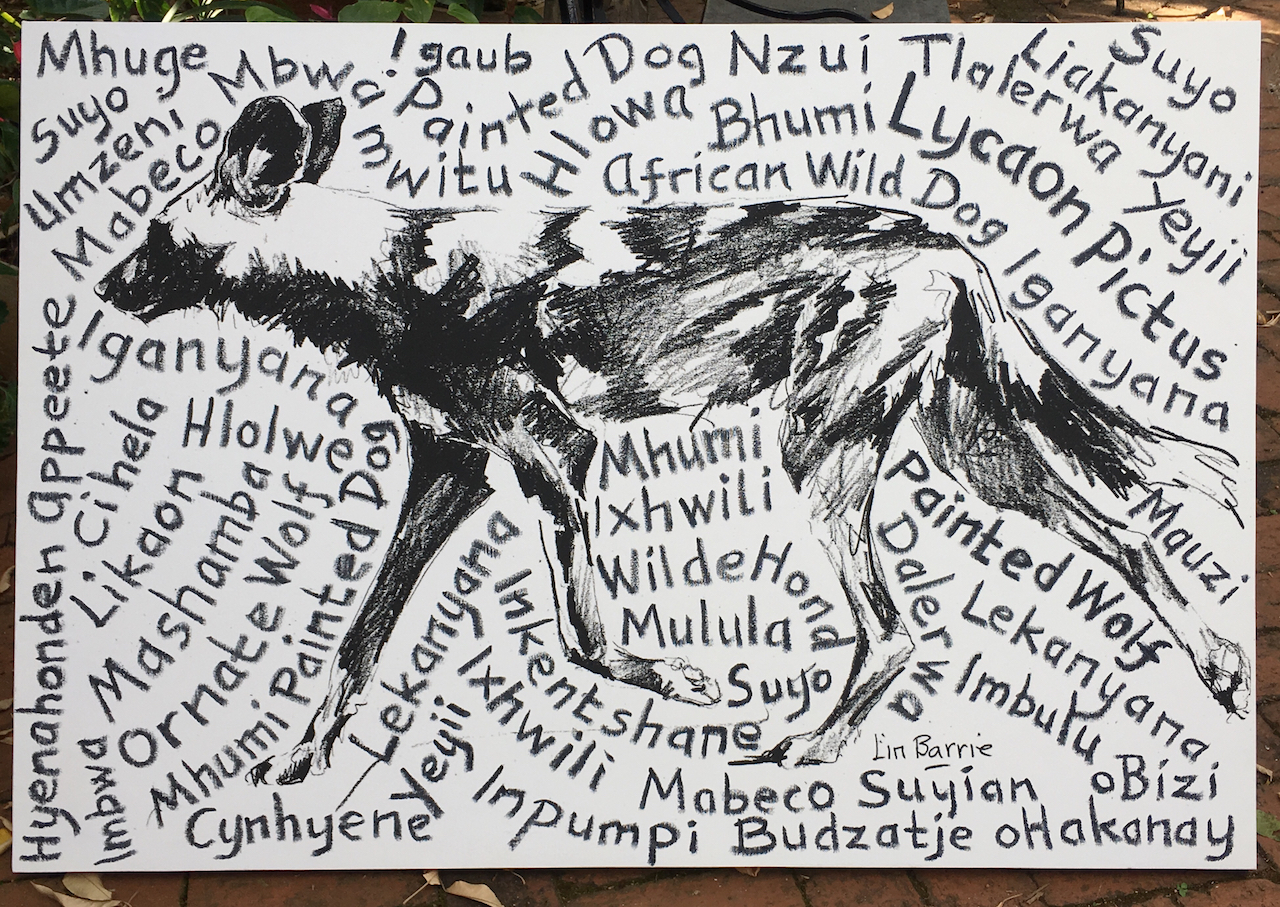 Mhuge
Suyo
Umzeni
Mabeco
Mbwa
mwitu
!gaub
Painted Dog
Hlowa
Nzui
Bhumi
African Wild Dog
Tlalerwa
Liakanyani
Suyo
Yeyii
Lycaon Pictus
Iganyana
Iganyana
Hlolwe
Hyenahonden appeete
Cihela
Likaon
Mashamba
Ornate Wolf
Mhumi Painted Dog
Imbwa
Cynhyene
Lekanyana
Yeyii
Ixhwili
Inkentshane
Impumpi
Mhumi
Ixhwili
Wilde Hond
Mulula
Suyo
Painted Wolf
Dalerwa
Lekanyana
Imbulu
Mauzi
Lin Barrie
Mabeco Suyian oBizi
Budzatje oHakanay